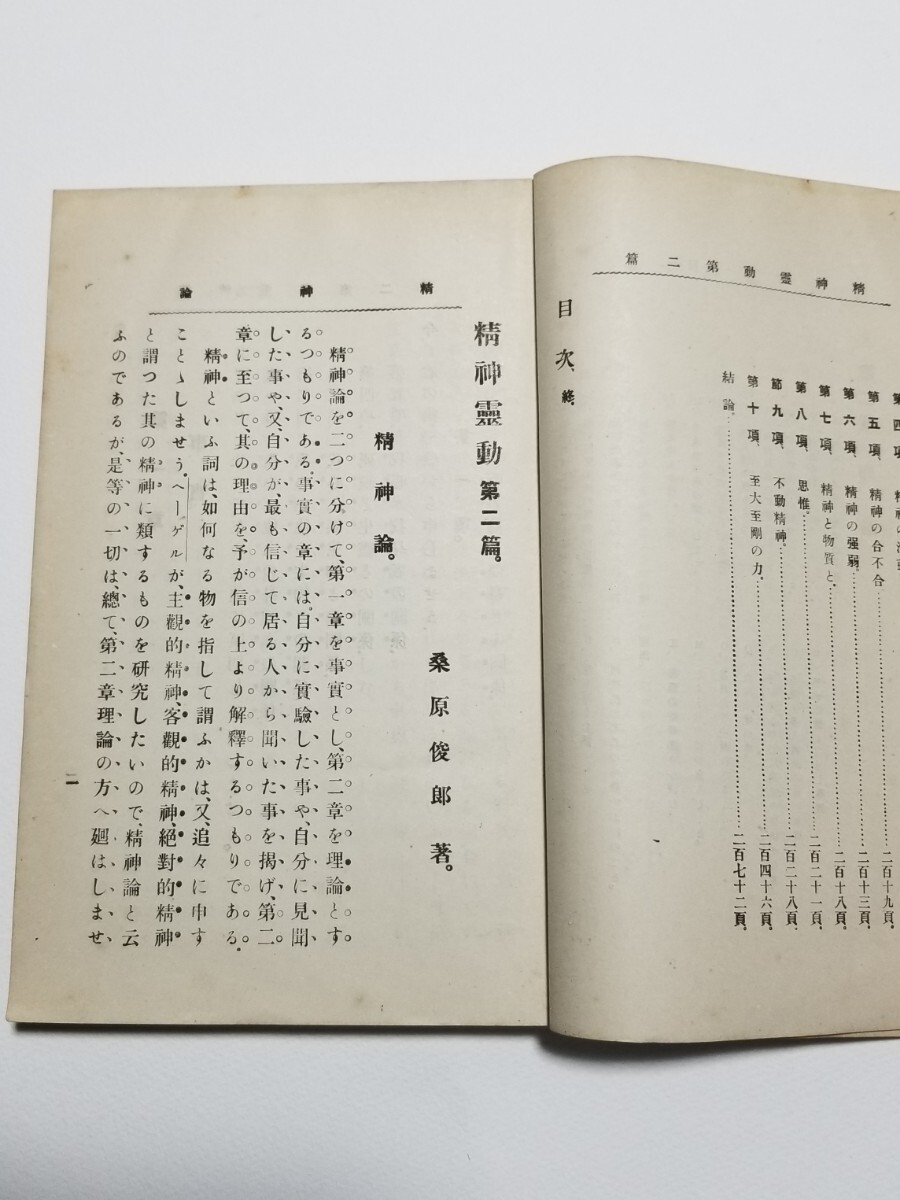 精神靈動第二篇
第五項、精神の合不合……二百十九頁。
第六項、精神の强弱。……二百十三頁。
第七項、精神と物質と、……二百十八頁。
第八項、思惟。……二百二十一頁。
節九項、不動精神。……二百二十八頁。
第十項、至大至剛の力、……二百四十六頁。
結論。……二百七十二頁。
目次、終、
精神論
精神靈動第二篇。
桑原俊郞著。
精神論。
精神論を二つに分けて、第一章を事實とし、第二章を理論とす
るつもりである。事實の章には、自分に實驗した事や、自分に見聞
した事や、又、自分が、最も信じて居る人から聞いた事を揭げ、第二
章に至つて、其の理由を、予が信の上より解釋するつもりである。
精神といふ詞は、如何なる物を指して謂ふかは、又、追々に申す
ことゝしませう。ヘーゲルが、主觀的精神、客觀的精神、絕對的精神
と謂つた其の精神に類するものを研究したいので、精神論と云
ふのであるが、是等の一切は、總て、第二章理論の方へ廻はしませ